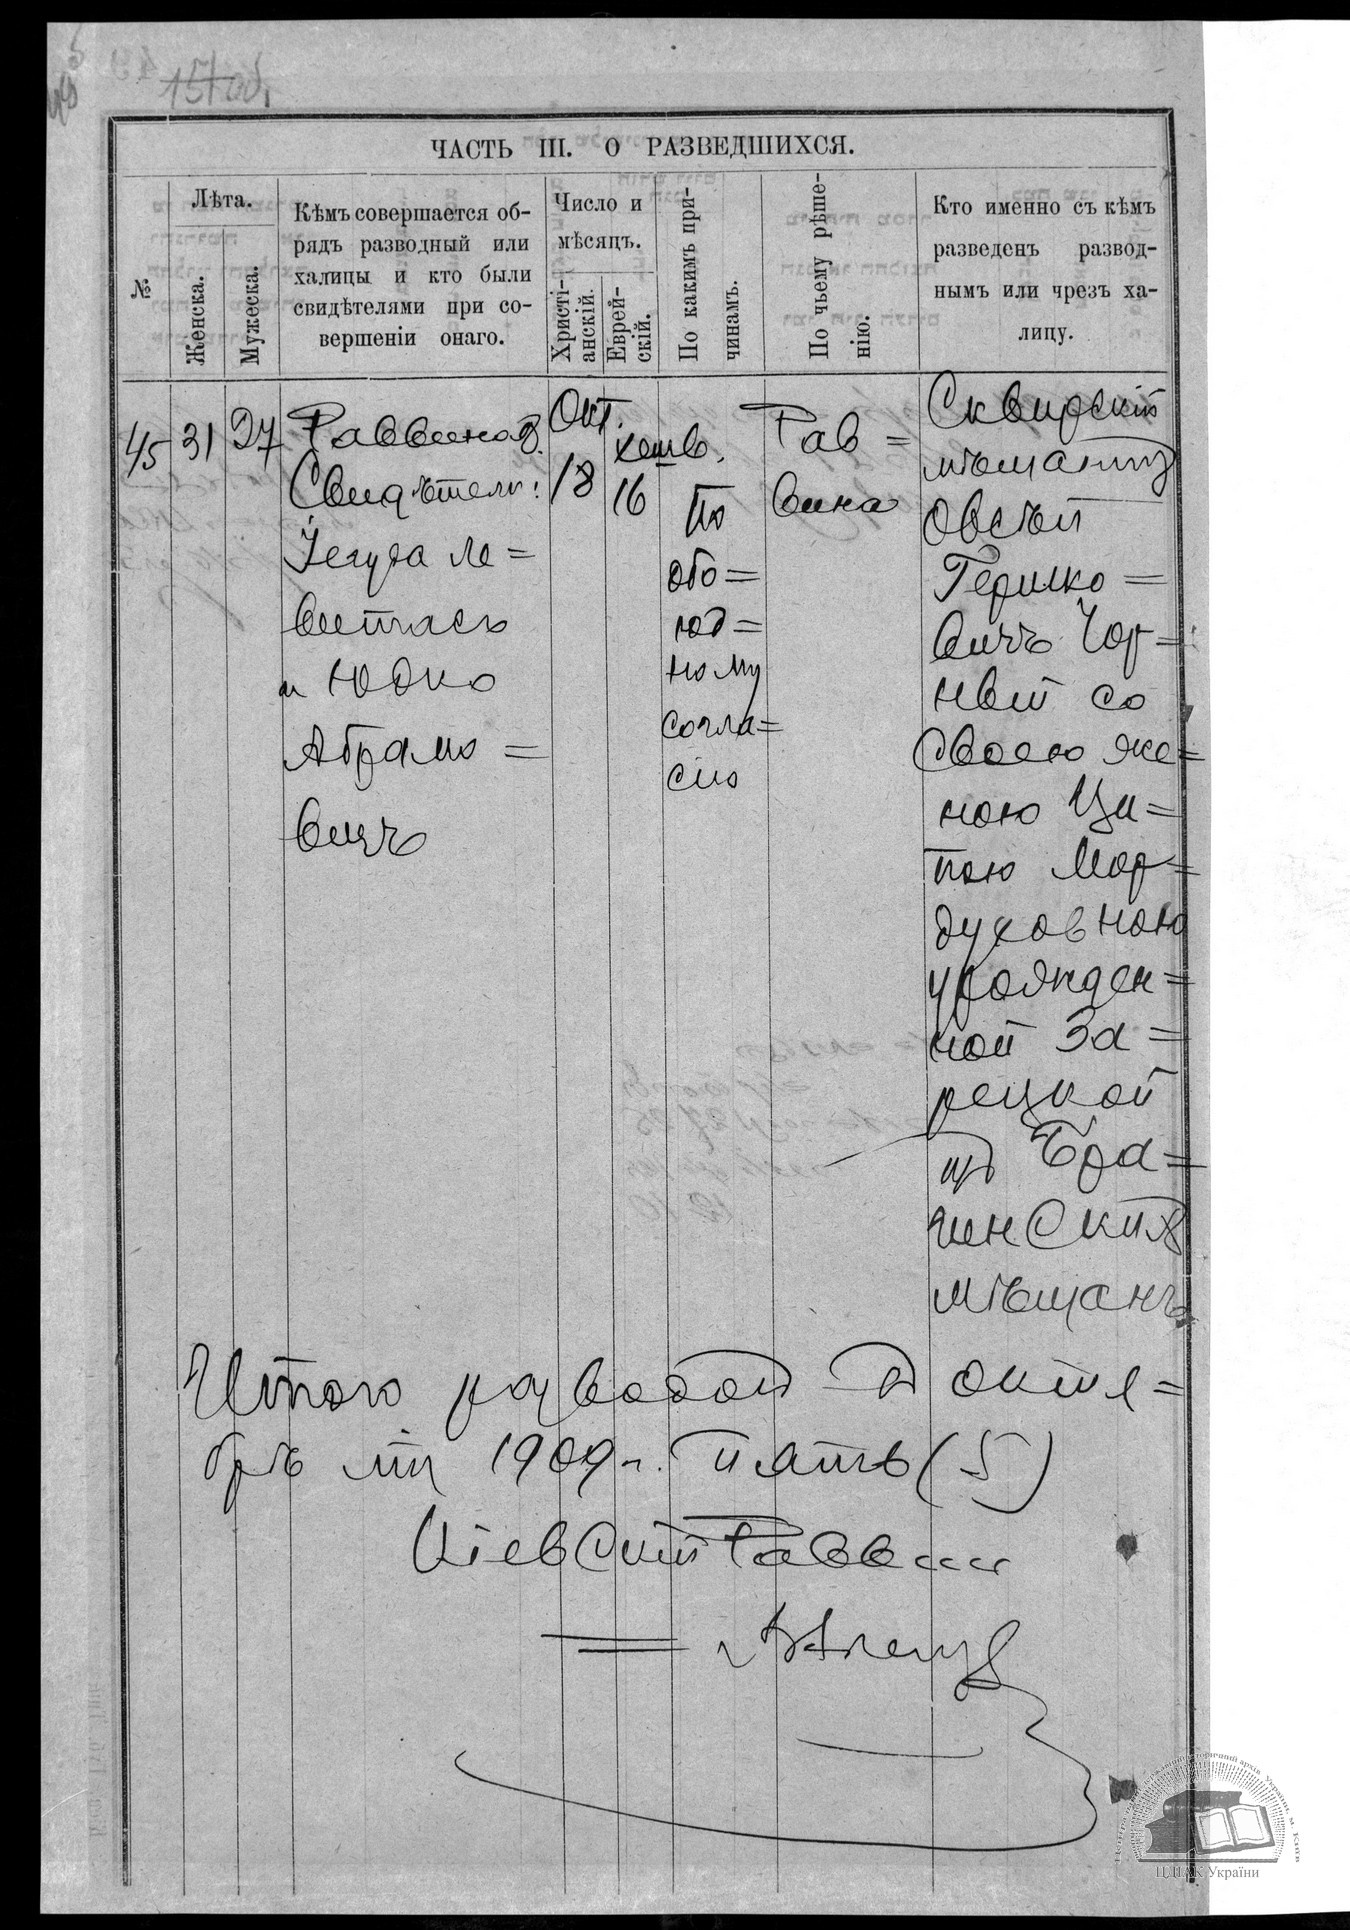 157 об.
ЧАСТЬ III. О РАЗВЕДШИХСЯ.
№
Лѣта.
Женска.
Мужеска.
Кѣмъ совершается об-
рядъ разводный или
халицы и кто были
свидѣтелями при со-
вершеніи онаго.
Число и
мѣсяцъ.
Христі-
анскій.
Еврей-
скій.
По какимъ при-
чинамъ.
По чьему рѣше-
нію.
Кто именно съ кѣмъ
разведенъ развод-
нымъ или чрезъ ха-
лицу.
45
31
27
Раввиномъ.
Свидѣтели:
Іегуда Ле=
витасъ
и Юдко
Абрамо=
вичъ
Окт.
18
хешв.
16
По
обо=
юд=
ному
согла=
сію
Рав=
вина
Сквирскій
мѣщанинъ
Овсѣй
Гершко=
вичъ Чор=
ный со
своею же=
ною Ци=
пою Мор=
духовною
урожден=
ной За=
рецкой
изъ Бра=
гинскихъ
мѣщанъ
Итого разводовъ въ октя=
брѣ мц 1909 г. пять (5)
Кіевскій Раввинъ
ЦДІАК України